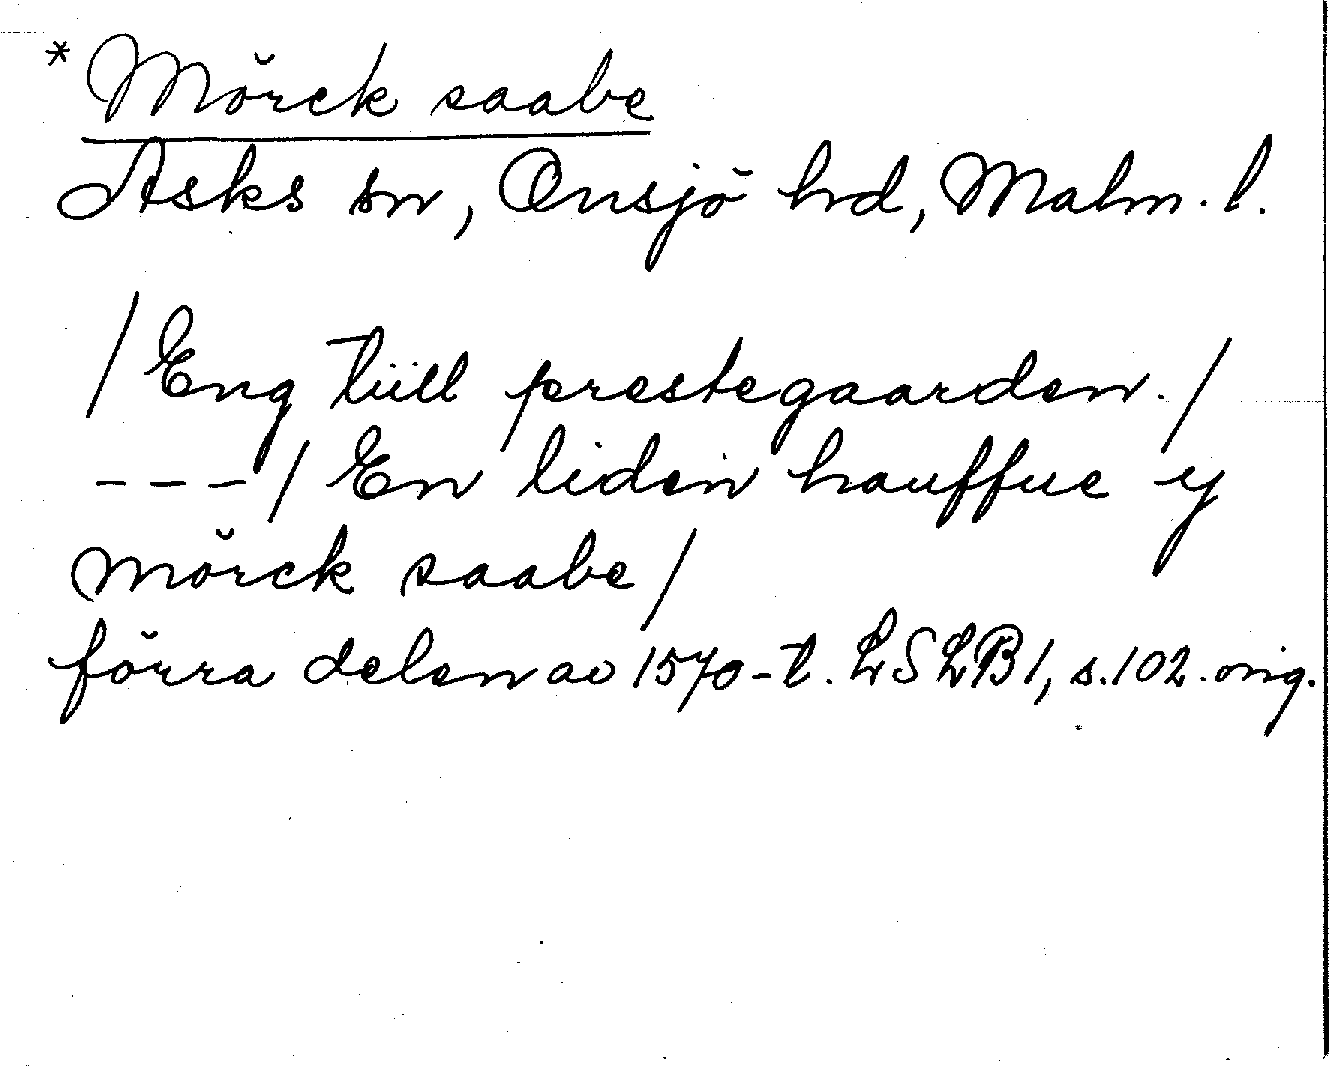 * Mörck saabe
Asks sn, Onsjö hd, Malm. l.
/Eng tiill prestegaarden./
---/ En liden hauffue y
mörck saabe/
förra delen av 1570-t. LSLB1, s.102.orig.